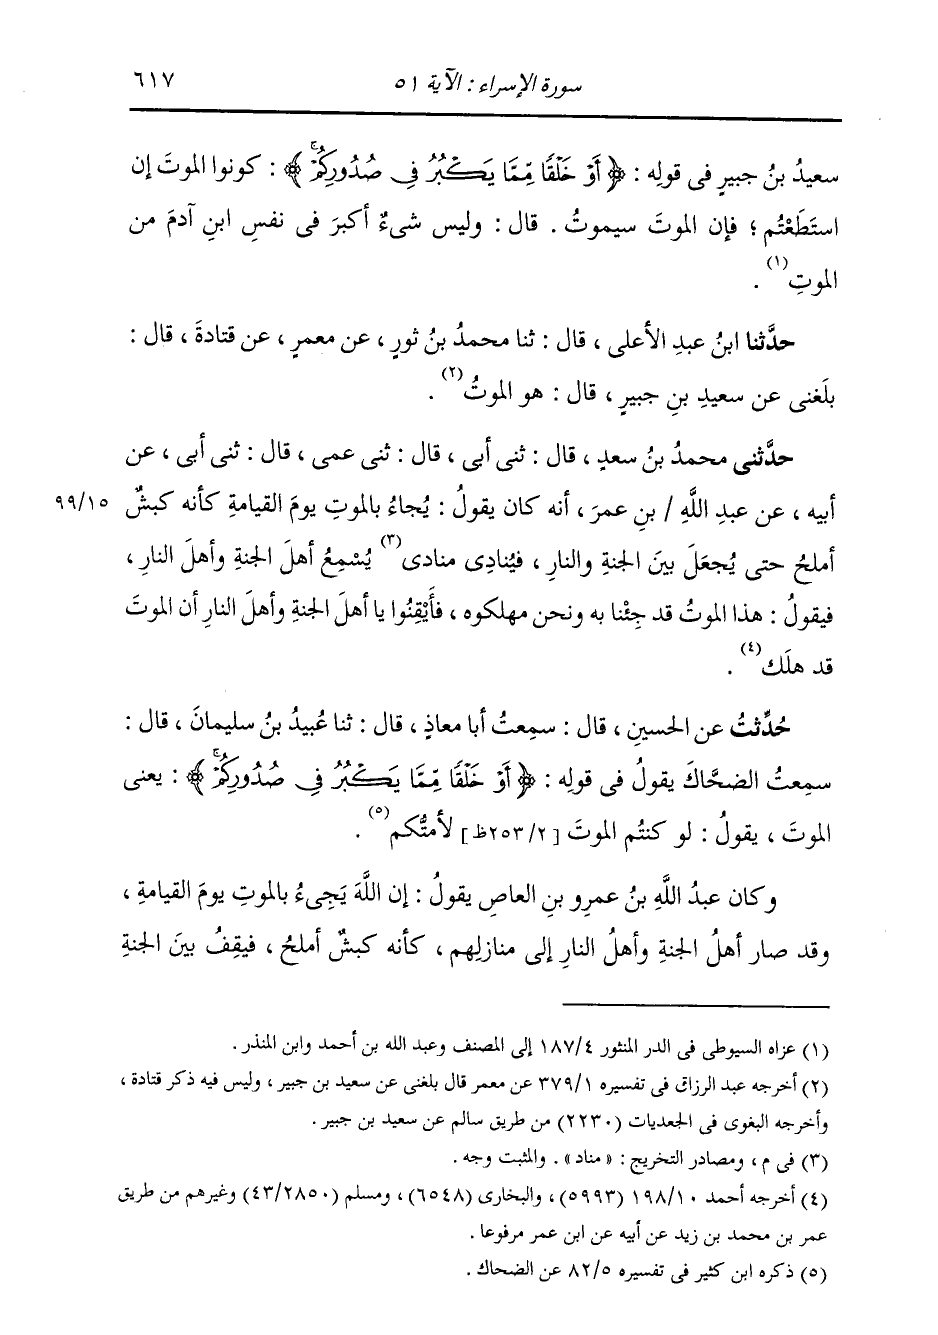 سورة الإسراء : الآية ٥١ ٦١٧
سعيدُ بنُ جبيرٍ فى قولِه : ﴿ أَوْ خَلْقًا مِّمَّا يَكْبُرُ فِى صُدُورِكُمْۚ ﴾ : كونوا الموتَ إن
استَطَعْتُم ؛ فإن الموتَ سيموتُ . قال : وليس شىءٌ أكبرَ فى نفسِ ابنِ آدمَ من
الموتِ(١) .
حدَّثنا ابنُ عبدِ الأعلى ، قال : ثنا محمدُ بنُ ثورٍ ، عن معمرٍ ، عن قتادةَ ، قال :
بلَغنى عن سعيدِ بنِ جبيرٍ ، قال : هو الموتُ(٢) .
حدَّثنى محمدُ بنُ سعدٍ ، قال : ثنى أبى ، قال : ثنى عمى ، قال : ثنى أبى ، عن
أبيه ، عن عبدِ اللَّهِ / بنِ عمرَ ، أنه كان يقولُ : يُجاءُ بالموتِ يومَ القيامةِ كأنه كبشٌ ٩٩/١٥
أملحُ حتى يُجعَلَ بينَ الجنةِ والنارِ ، فيُنادِى منادى(٣) يُسْمِعُ أهلَ الجنةِ وأهلَ النارِ ،
فيقولُ : هذا الموتُ قد جِئْنا به ونحن مهلكوه ، فأَيْقِنُوا يا أهلَ الجنةِ وأهلَ النارِ أن الموتَ
قد هلَك(٤) .
حُدِّثتُ عن الحسينِ ، قال : سمِعتُ أبا معاذٍ ، قال : ثنا عُبيدُ بنُ سليمانَ ، قال :
سمِعتُ الضحَّاكَ يقولُ فى قولِه : ﴿ أَوْ خَلْقًا مِّمَّا يَكْبُرُ فِى صُدُورِكُمْۚ ﴾ : يعنى
الموتَ ، يقولُ : لو كنتُم الموتَ [ ٢٥٣/٢ظ ] لأَمتُّكم(٥) .
وكان عبدُ اللَّهِ بنُ عمرِو بنِ العاصِ يقولُ : إن اللَّهَ يَجِىءُ بالموتِ يومَ القيامةِ ،
وقد صار أهلُ الجنةِ وأهلُ النارِ إلى منازلِهم ، كأنه كبشٌ أملحُ ، فيقِفُ بينَ الجنةِ
(١) عزاه السيوطى فى الدر المنثور ١٨٧/٤ إلى المصنف وعبد الله بن أحمد وابن المنذر .
(٢) أخرجه عبد الرزاق فى تفسيره ٣٧٩/١ عن معمر قال بلغنى عن سعيد بن جبير ، وليس فيه ذكر قتادة ،
وأخرجه البغوى فى الجعديات (٢٢٣٠) من طريق سالم عن سعيد بن جبير .
(٣) فى م ، ومصادر التخريج : « مناد » . والمثبت وجه .
(٤) أخرجه أحمد ١٩٨/١٠ (٥٩٩٣) ، والبخارى (٦٥٤٨) ، ومسلم (٤٣/٢٨٥٠) وغيرهم من طريق
عمر بن محمد بن زيد عن أبيه عن ابن عمر مرفوعا .
(٥) ذكره ابن كثير فى تفسيره ٨٢/٥ عن الضحاك .